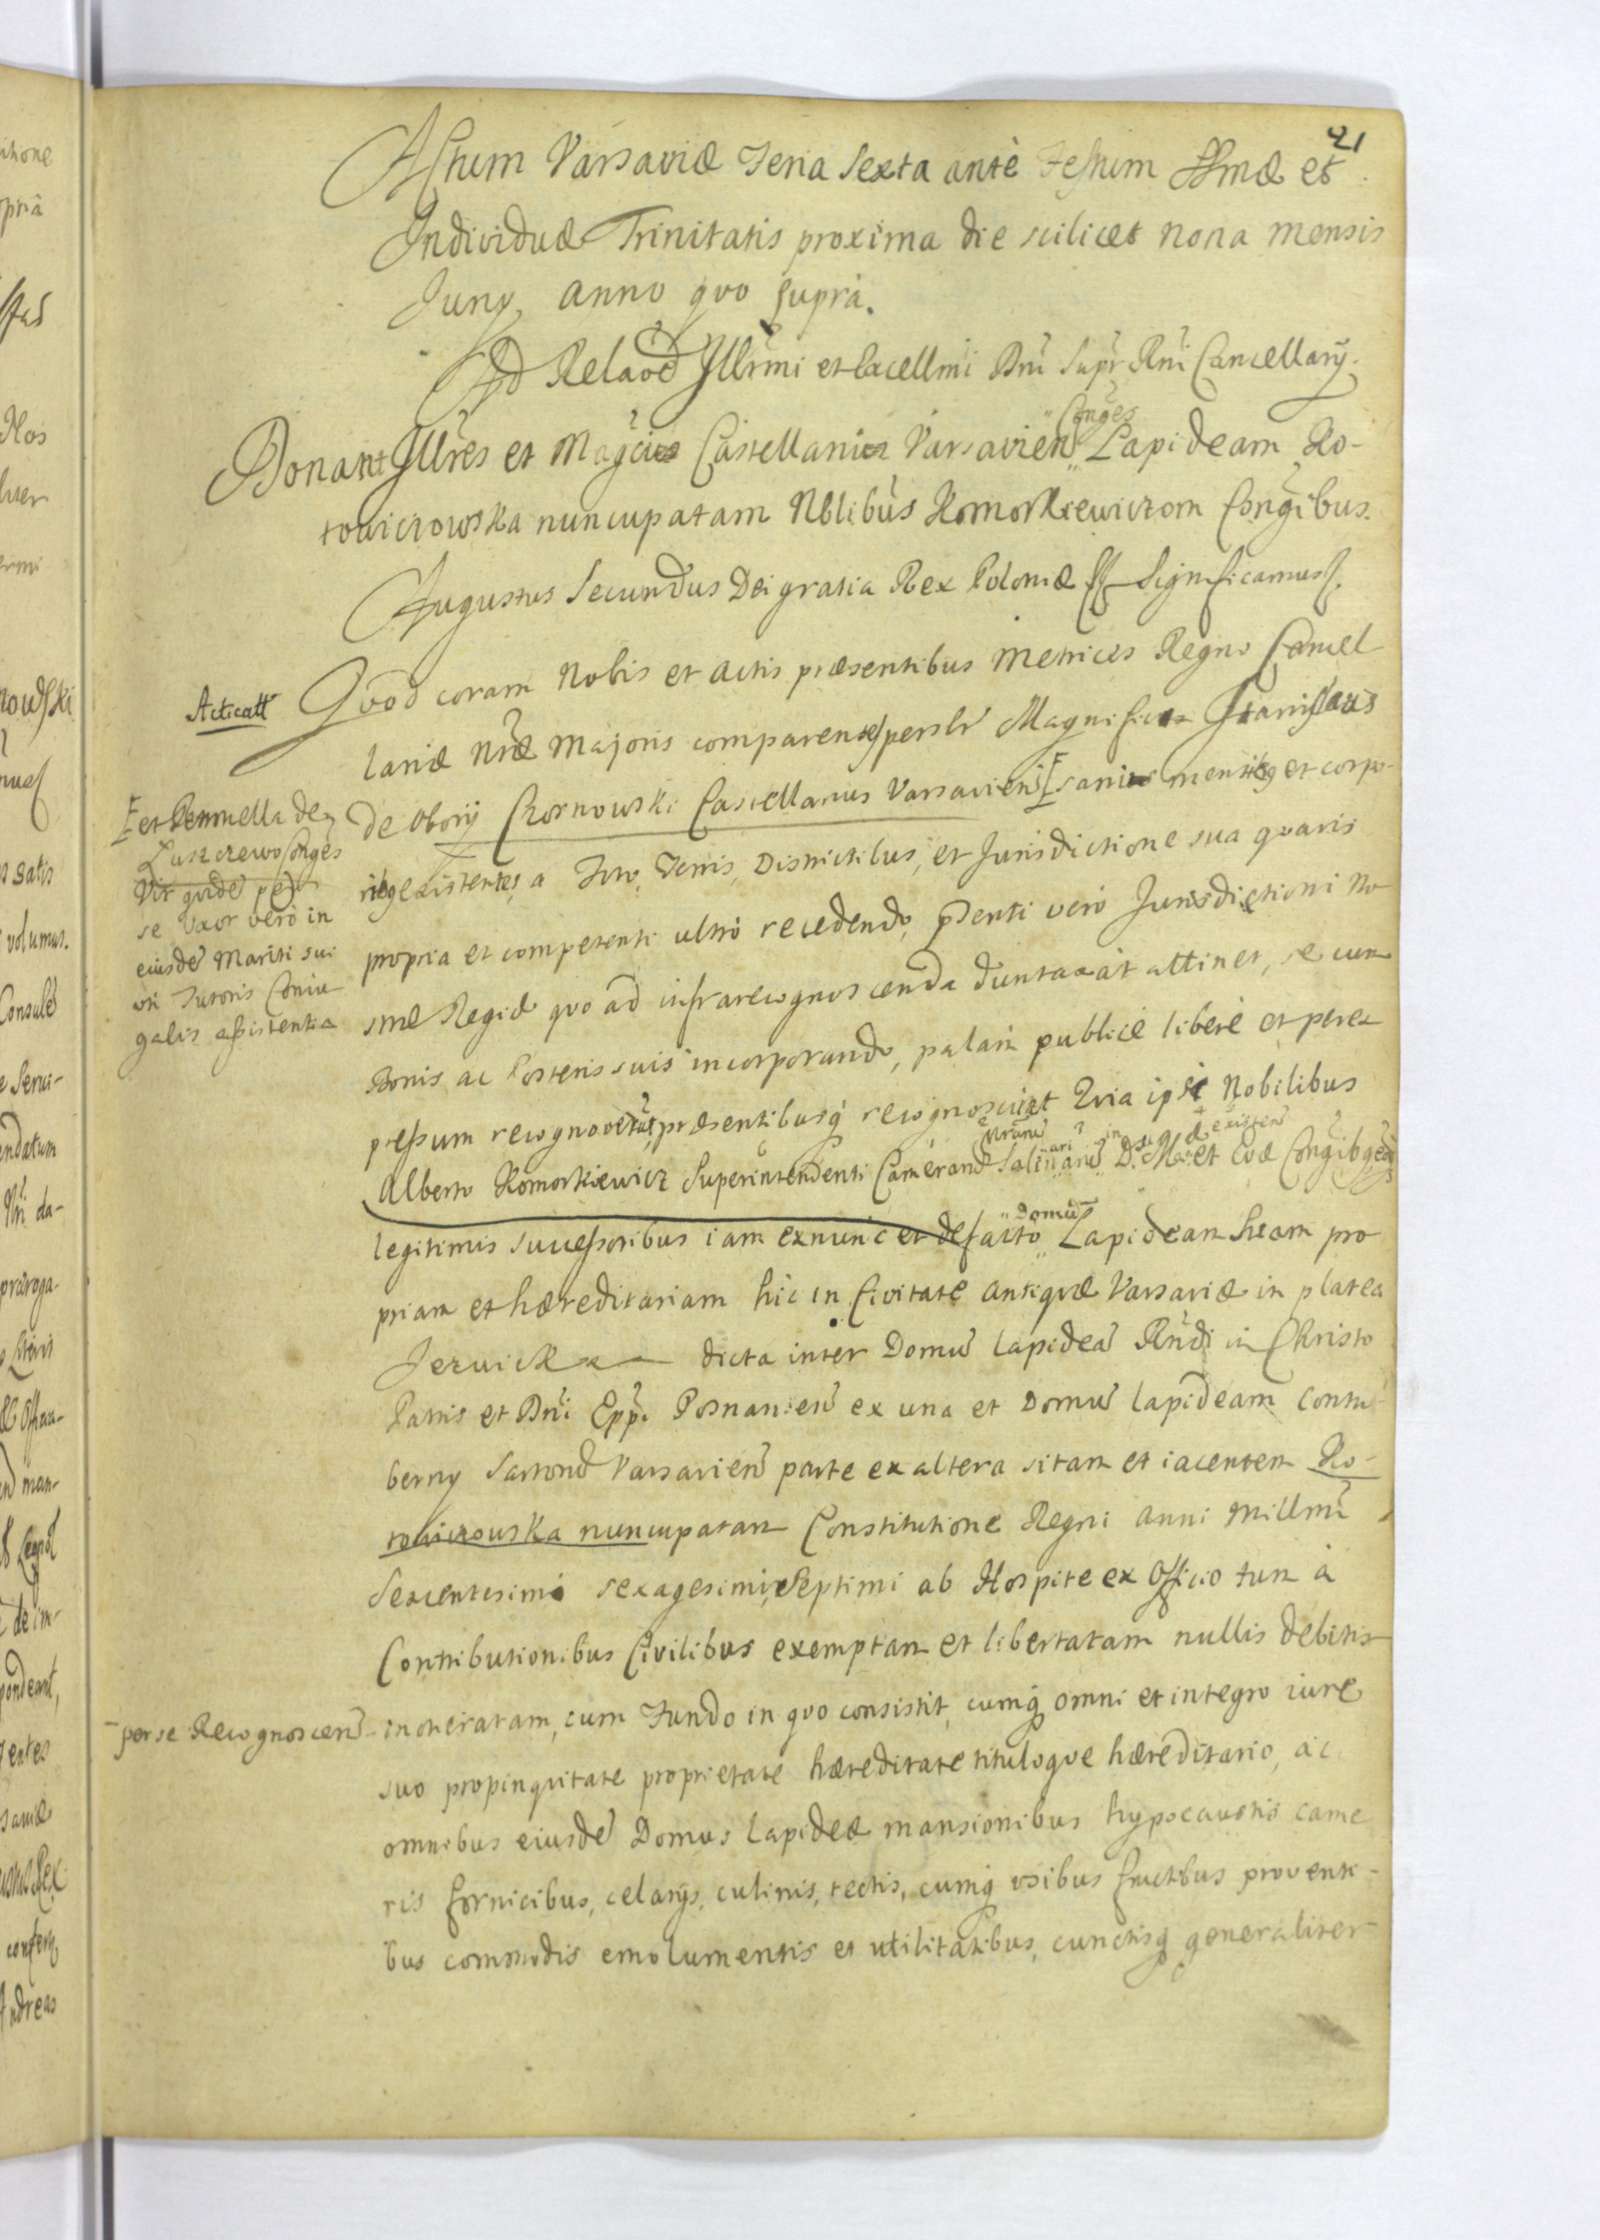 21
Actum Varsaviæ Feria Sexta antè Festum SSmæ et
Individuæ Trinitatis proxima die scilicet nona mensis
Juny anno quo suprà.
Ad Relaõe Illr̃mi et Excellmi Dni Supr Rni Cancellarÿ.
Donant Illr̃es et Magci Castellani Varsavien Conges Lapideam Ko-
towiczowska nuncupatam Nblibus Komorkiewiczom Congibus.
Augustus Secundus Dei gratia Rex Poloniæ Significamus
Acticatt
Quod coram Nobis et actis præsentibus Metrices Regni Cancel
lariæ Nræ Majoris comparentes persl̃r Magnifici Stanislaus
de Obory Chornowski Castellanus Varsavien sani mentibq et corpo-
ribq existentes, a Foro, Terris, Districtibus, et Jurisdictione sua quavis
propria et competenti ultrò recedendo, pñti verò Jurisdictioni No
stræ Regiæ quo ad infrarecognoscenda duntaxàt attinet, se cum
Bonis ac Posteris suis incorporando, palàm publicè liberè et perex
pressum recognoverunt, præsentibusq recognoscunt Quia ipsi Nobilibus
Alberto Komorkiewicz Superintendenti Camerarū Salinarū Nrarū in D. M. existen et Evæ Congibq
legitimis successoribus iam exnunc et defacto Domū Lapideam suam pro
priam et hæreditariam hic in Civitate antiquæ Varsaviæ in platea
Jezuicka dicta inter Domū lapideā Rñdi in Christo
Patris et Dni Epp̃i Posnanien ex una et Domū lapideam Contu
berny Sartorū Varsavien parte ex altera sitam et iacentem Ko-
towiczowska nuncupatam Constitutione Regni anni Millmi
Sexcentesimi sexagesimi Septimi ab Hospite ex Officio tum à
Contributionibus Civilibus exemptam et libertatam nullis debitis
inoneratam, cum Fundo in quo consistit, cumq omni et integro iure
suo propinquitate proprietate hæreditate tituloque hæreditario, ac
omnibus eiusdē Domus lapideæ mansionibus hypocaustis came
ris fornicibus, celarys, culinis, tectis, cumq usibus fructibus proventi-
bus commodis emolumentis et utilitatibus, cunctisq generaliter
et Petronella de
Luszczewo Conges
Vir quidē per
se Uxor verò in
eiusdē Mariti sui
uti Tutoris Coniu
galis assistentia
per se Recognoscen